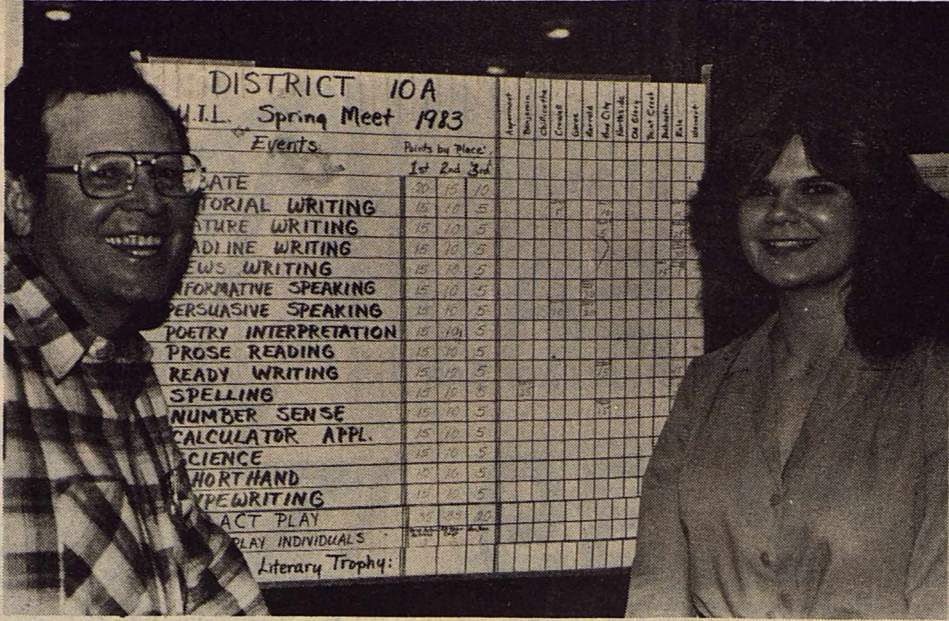 DISTRICT 10A
U.I.L. Spring Meet 1983
Events Points by Place
1st 2nd 3rd
Aspermont
Benjamin
Chillicothe
Crowell
Harrold
Knox City
Northside
Old Glory
Paint Creek
Rochester
Rule
BATE 20 15 10
TORIAL WRITING 15 10 5
ATURE WRITING 15 10 5
ADLINE WRITING 15 10 5
EWS WRITING 15 10 5
NFORMATIVE SPEAKING 15 10 5
PERSUASIVE SPEAKING 15 10 5
POETRY INTERPRETATION 15 10 5
PROSE READING 15 10 5
READY WRITING 15 10 5
SPELLING 15 10 5
NUMBER SENSE 15 10 5
CALCULATOR APPL. 15 10 5
SCIENCE 15 10 5
HORTHAND 15 10 5
YPEWRITING 15 10 5
ACT PLAY 20
PLAY INDIVIDUALS
Literary Trophy: